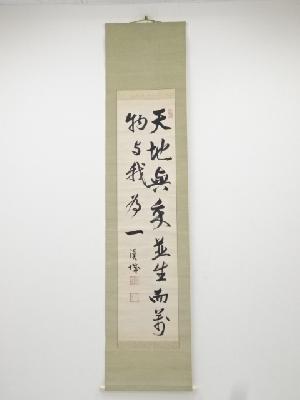 天地與我並生而萬
物与我為一